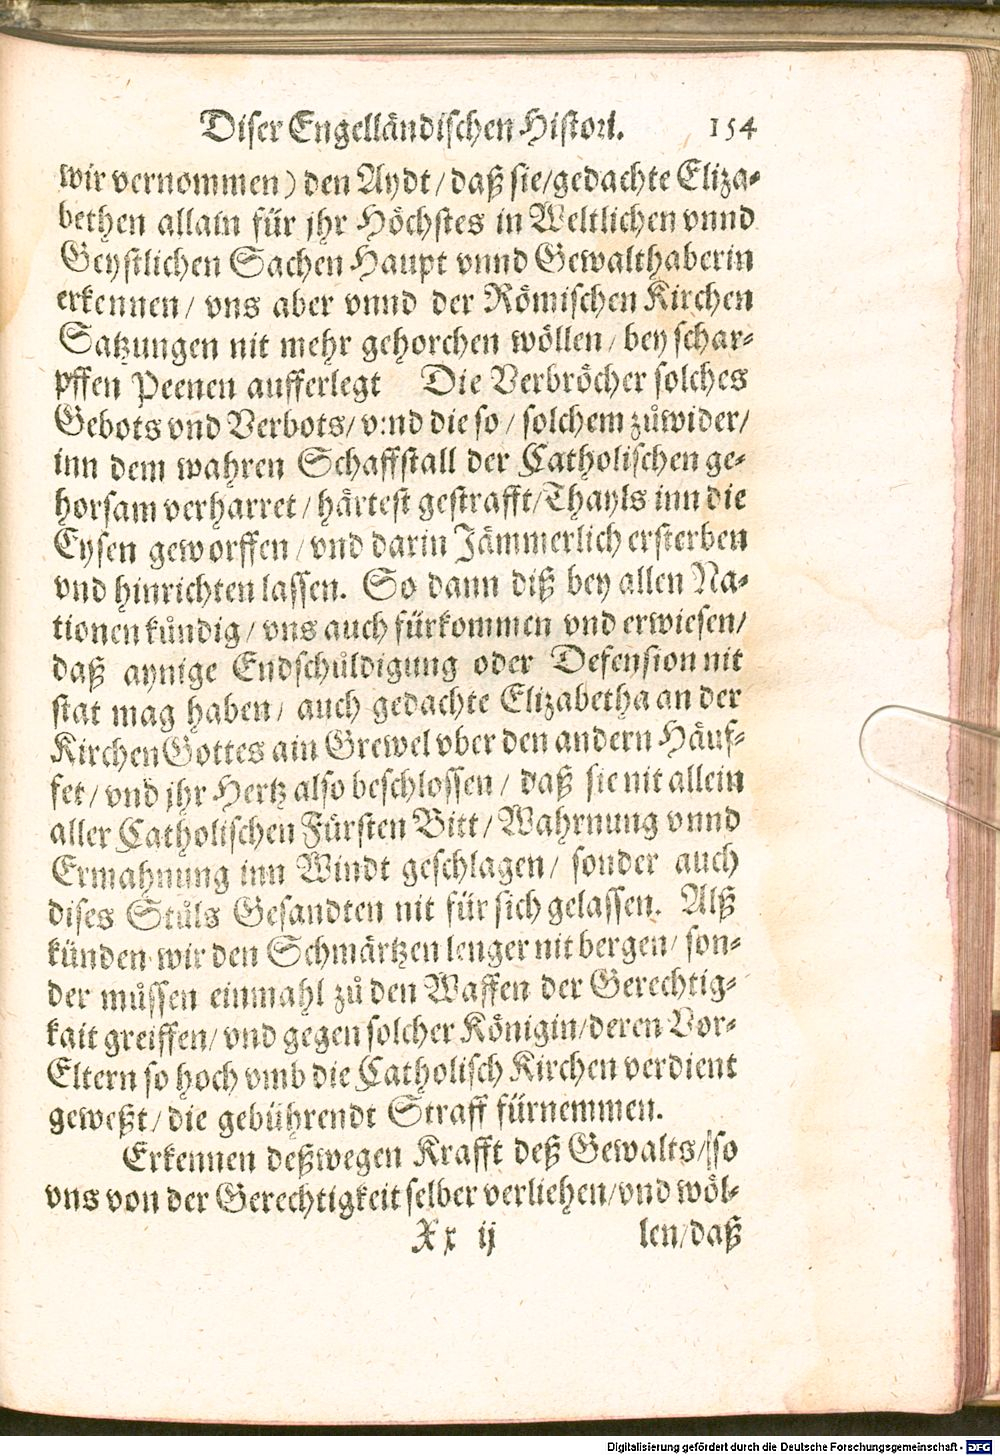 Diser Engelländischen Histori. 154
wir vernommen) den Aydt/ daß sie/gedachte Eliza-
bethen allain für jhr Höchstes in Weltlichen vnnd
Geystlichen Sachen Haupt vnnd Gewalthaberin
erkennen/ vns aber vnnd der Römischen Kirchen
Satzungen nit mehr gehorchen wöllen/ bey schar-
pffen Peenen aufferlegt Die Verbröcher solches
Gebots vnd Verbots/ vnnd die so/ solchem zůwider/
inn dem wahren Schaffstall der Catholischen ge-
horsam verharret/ härtest gestrafft/Thayls inn die
Eysen geworffen/ vnd darin Jämmerlich ersterben
vnd hinrichten lassen. So dann diß bey allen Na-
tionen kündig/ vns auch fürkommen vnd erwiesen/
daß aynige Endschůldigung oder Defension nit
stat mag haben/ auch gedachte Elizabetha an der
Kirchen Gottes ain Grewel vber den andern Häuf-
fet/ vnd jhr Hertz also beschlossen/ daß sie nit allein
aller Catholischen Fürsten Bitt/ Wahrnung vnnd
Ermahnung inn Windt geschlagen/ sonder auch
dises Stůls Gesandten nit für sich gelassen. Alß
künden wir den Schmärtzen lenger nit bergen/ son-
der můssen einmahl zů den Waffen der Gerechtig-
kait greiffen/ vnd gegen solcher Königin/deren Vor-
Eltern so hoch vmb die Catholisch Kirchen verdient
geweßt/ die gebührendt Straff fürnemmen.
Erkennen deßwegen Krafft deß Gewalts/ so
vns von der Gerechtigkeit selber verliehen/vnd wöl-
Xx ij len/daß
Digitalisierung gefördert durch die Deutsche Forschungsgemeinschaft - DFG